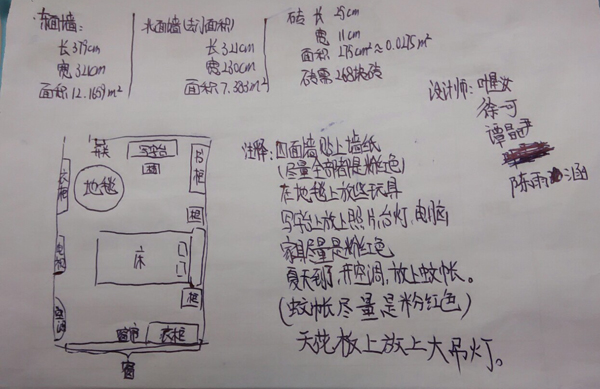 东面墙:
长 379cm
宽 321cm
面积 12.1659m²
北面墙(去门面积)
长 321cm
宽 230cm
面积 7.383m²
砖 长 25cm
宽 11cm
面积 275cm²≈0.0275m²
砖需 268块砖
设计师:
徐可
谭晶尹
陈雨涵
注释: 四面墙贴上墙纸
(尽量全部都是粉红色)
在地毯上放些玩具
写字台上放上照片,台灯,电脑
家具尽量是粉红色
夏天到了,开空调,放上蚊帐。
(蚊帐尽量是粉红色)
天花板上放上大吊灯。
写字台
书柜
衣柜
地毯
柜
床
柜
空调
窗帘
衣柜
窗